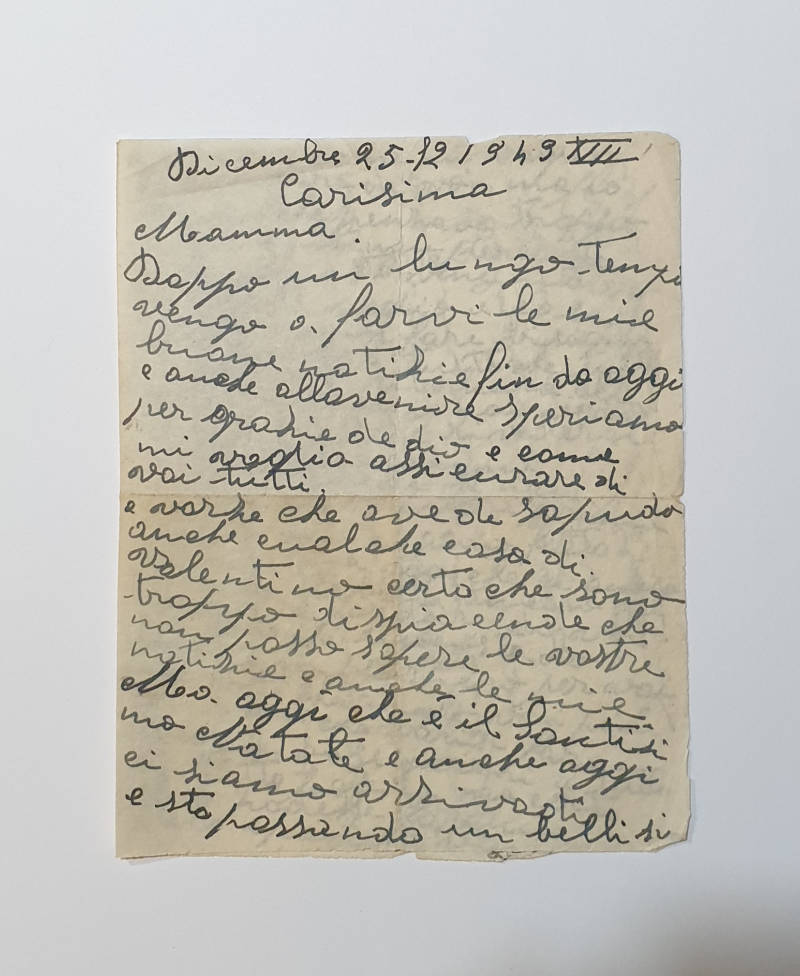 Dicembre 25-12 1949 XVII
Carisima
Mamma
Doppo un lungo tempo
vengo a farvi le mie
buone notizie fin da oggi
e anche allavenire speriamo
per grazie de dio e come
mi voglio assicurare di
voi tutti.
e varse che avede sapudo
anche cualche cosa di
Valentino certo che sono
troppo dispiacende che
non posso sapere le vostre
notizie e anche le mie
Ma oggi che è il Santissi
mo Natale e anche oggi
ci siamo arrivati
e sto passando un bellisi